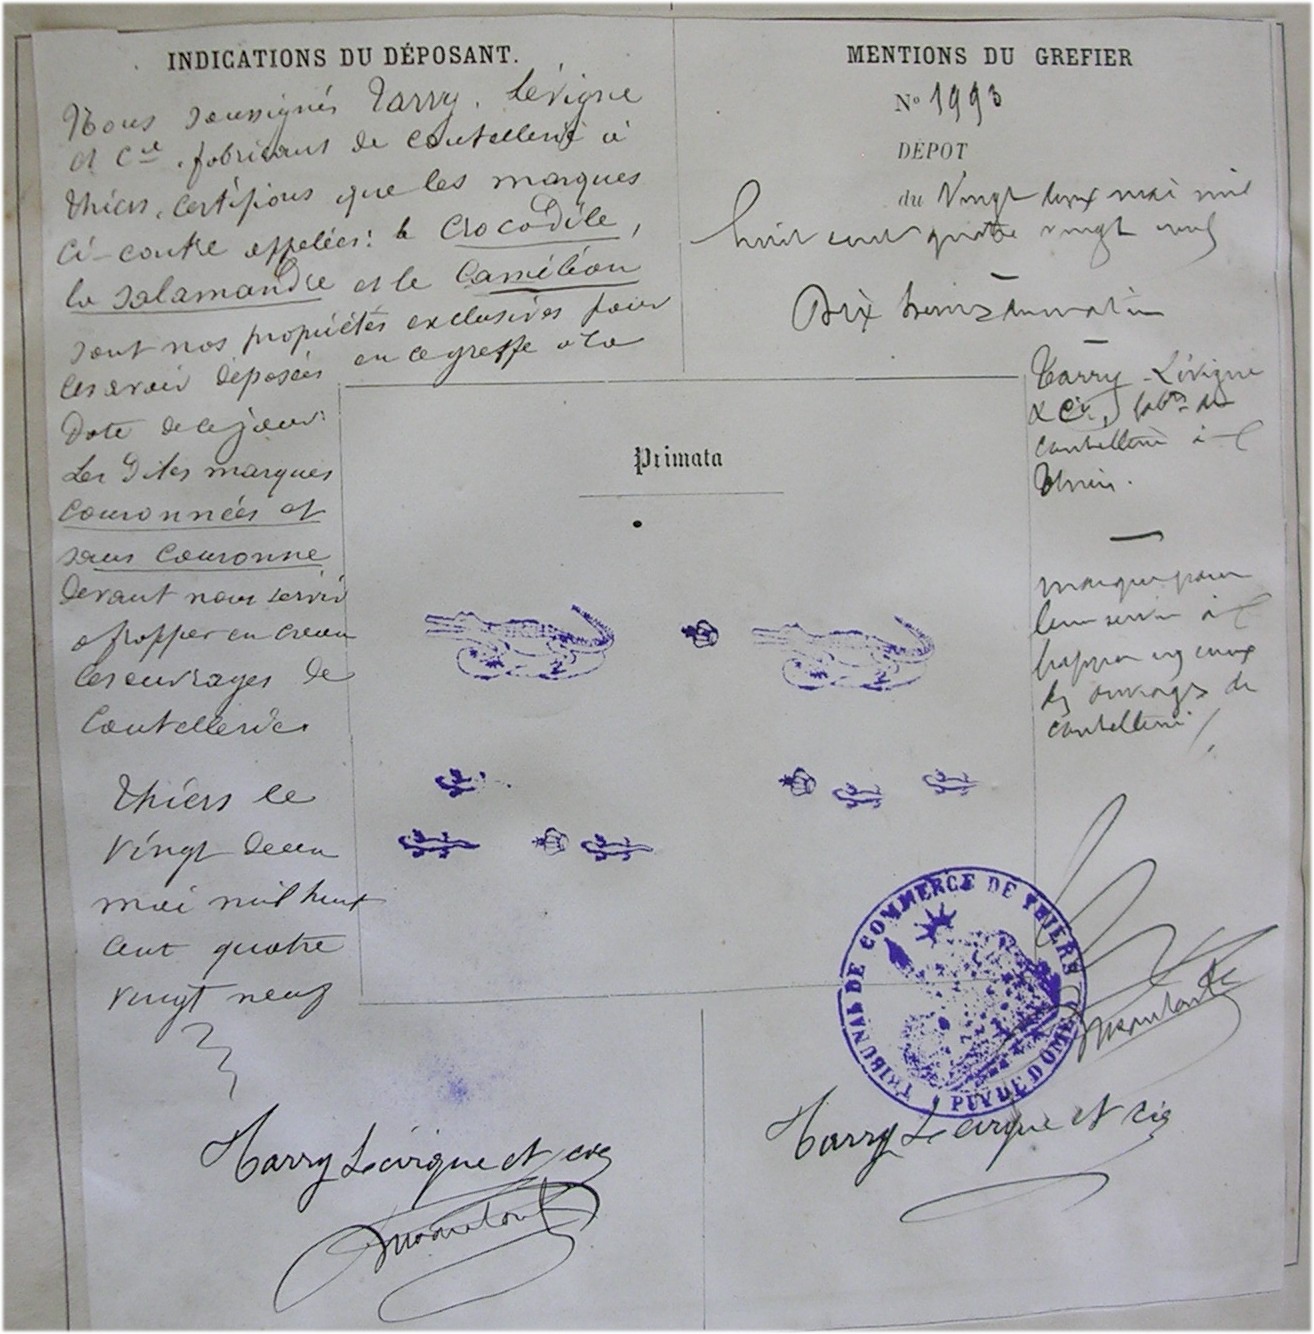 INDICATIONS DU DÉPOSANT.
Nous soussignés Tarry, Lévigne
et Cie, fabricants de coutellerie à
Thiers, certifions que les marques
ci-contre appelées: le Crocodile,
la Salamandre et le Caméléon
sont nos propriétés exclusives pour
les avoir déposées en ce greffe à la
Date de ce jour
Les Dites marques
couronnées et
sans couronne
devant nous servir
à frapper en creux
les ouvrages de
Coutellerie.
Thiers le
vingt deux
mai mil huit
cent quatre
vingt neuf
Tarry Lévigne et Cie
MENTIONS DU GREFIER
No 1993
DÉPOT
du Vingt deux mai mil
huit cent quatre vingt neuf
Dix heures du matin
Tarry Lévigne
& Cie, fabts de
coutellerie à
Thiers.
marques pour
leur servir à
frapper en creux
les ouvrages de
coutellerie
Primata
TRIBUNAL DE COMMERCE DE THIERS
PUY DE DOME
Tarry Lévigne et Cie